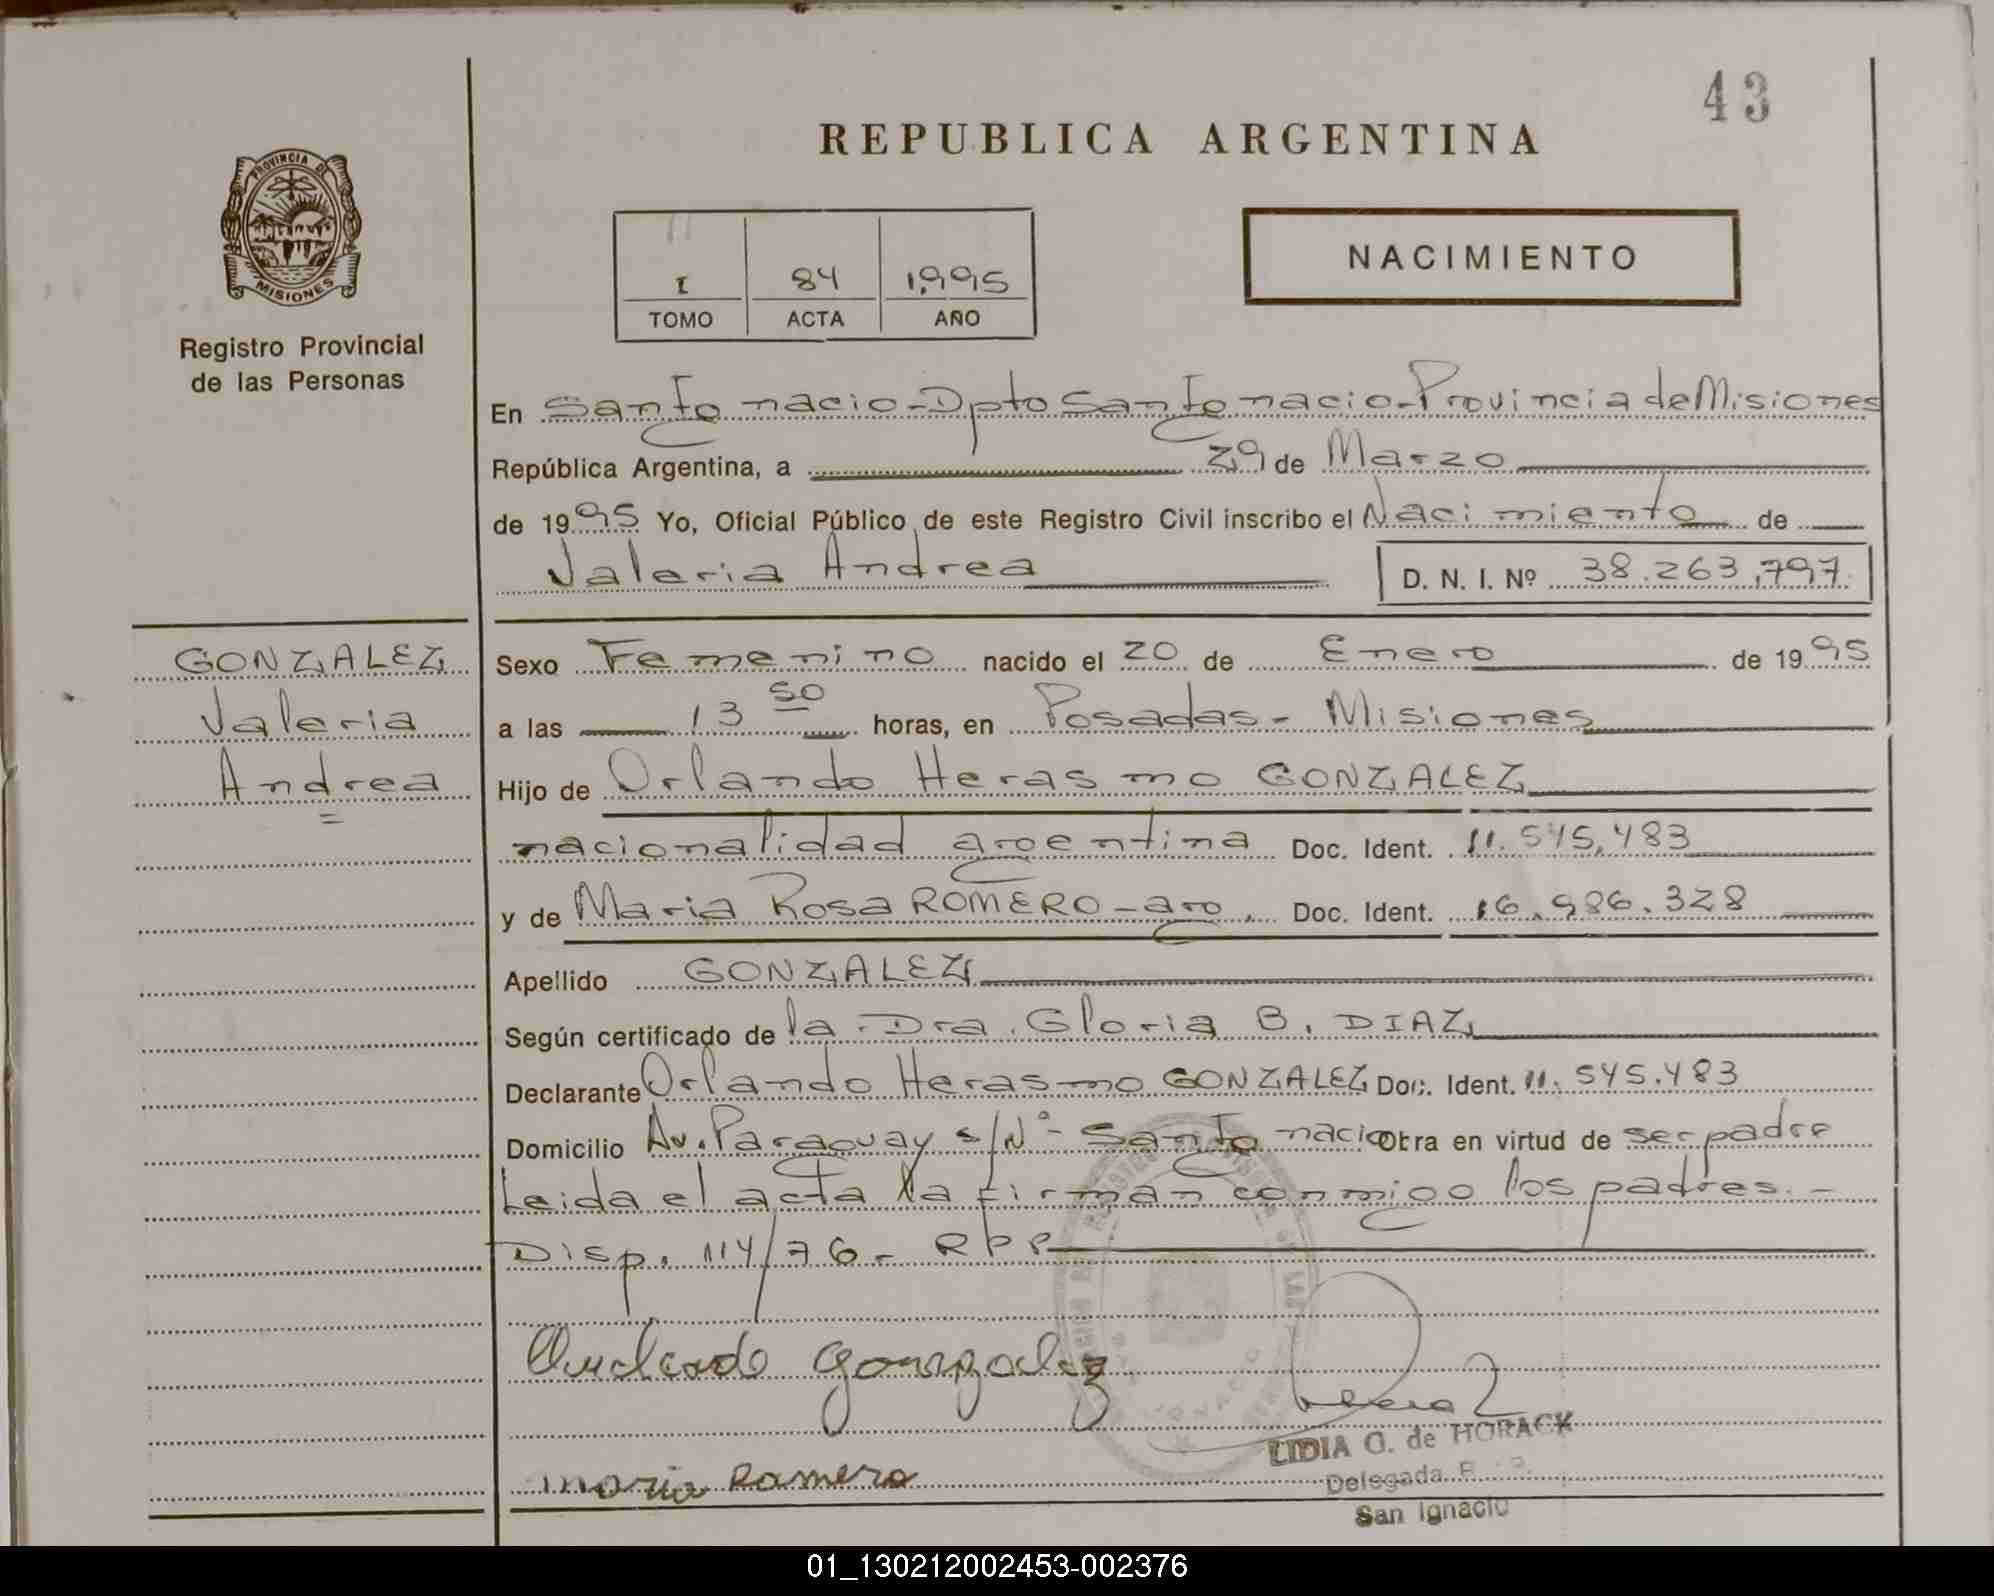 43
REPUBLICA ARGENTINA
PROVINCIA DE
MISIONES
Registro Provincial
de las Personas
I 84 1.995
TOMO ACTA AÑO
NACIMIENTO
En San Ignacio - Dpto San Ignacio - Provincia de Misiones
República Argentina, a 29 de Marzo
de 1995 Yo, Oficial Público de este Registro Civil inscribo el Nacimiento de
Valeria Andrea D. N. I. Nº 38.263.797
GONZALEZ
Valeria
Andrea
Sexo Femenino nacido el 20 de Enero de 1995
a las 13 50 horas, en Posadas - Misiones
Hijo de Orlando Herasmo GONZALEZ
nacionalidad argentina Doc. Ident. 11.545.483
y de Maria Rosa ROMERO - arg. Doc. Ident. 16.986.328
Apellido GONZALEZ
Según certificado de la Dra. Gloria B. DIAZ
Declarante Orlando Herasmo GONZALEZ Doc. Ident. 11.545.483
Domicilio Av. Paraguay s/Nº - San Ignacio Obra en virtud de ser padre
Leida el acta la firman conmigo los padres. -
Disp. 114/76 - RPP
Gonzalez
Maria Romero
LIDIA G. de HORACK
Delegada R.
San Ignacio
01_130212002453-002376